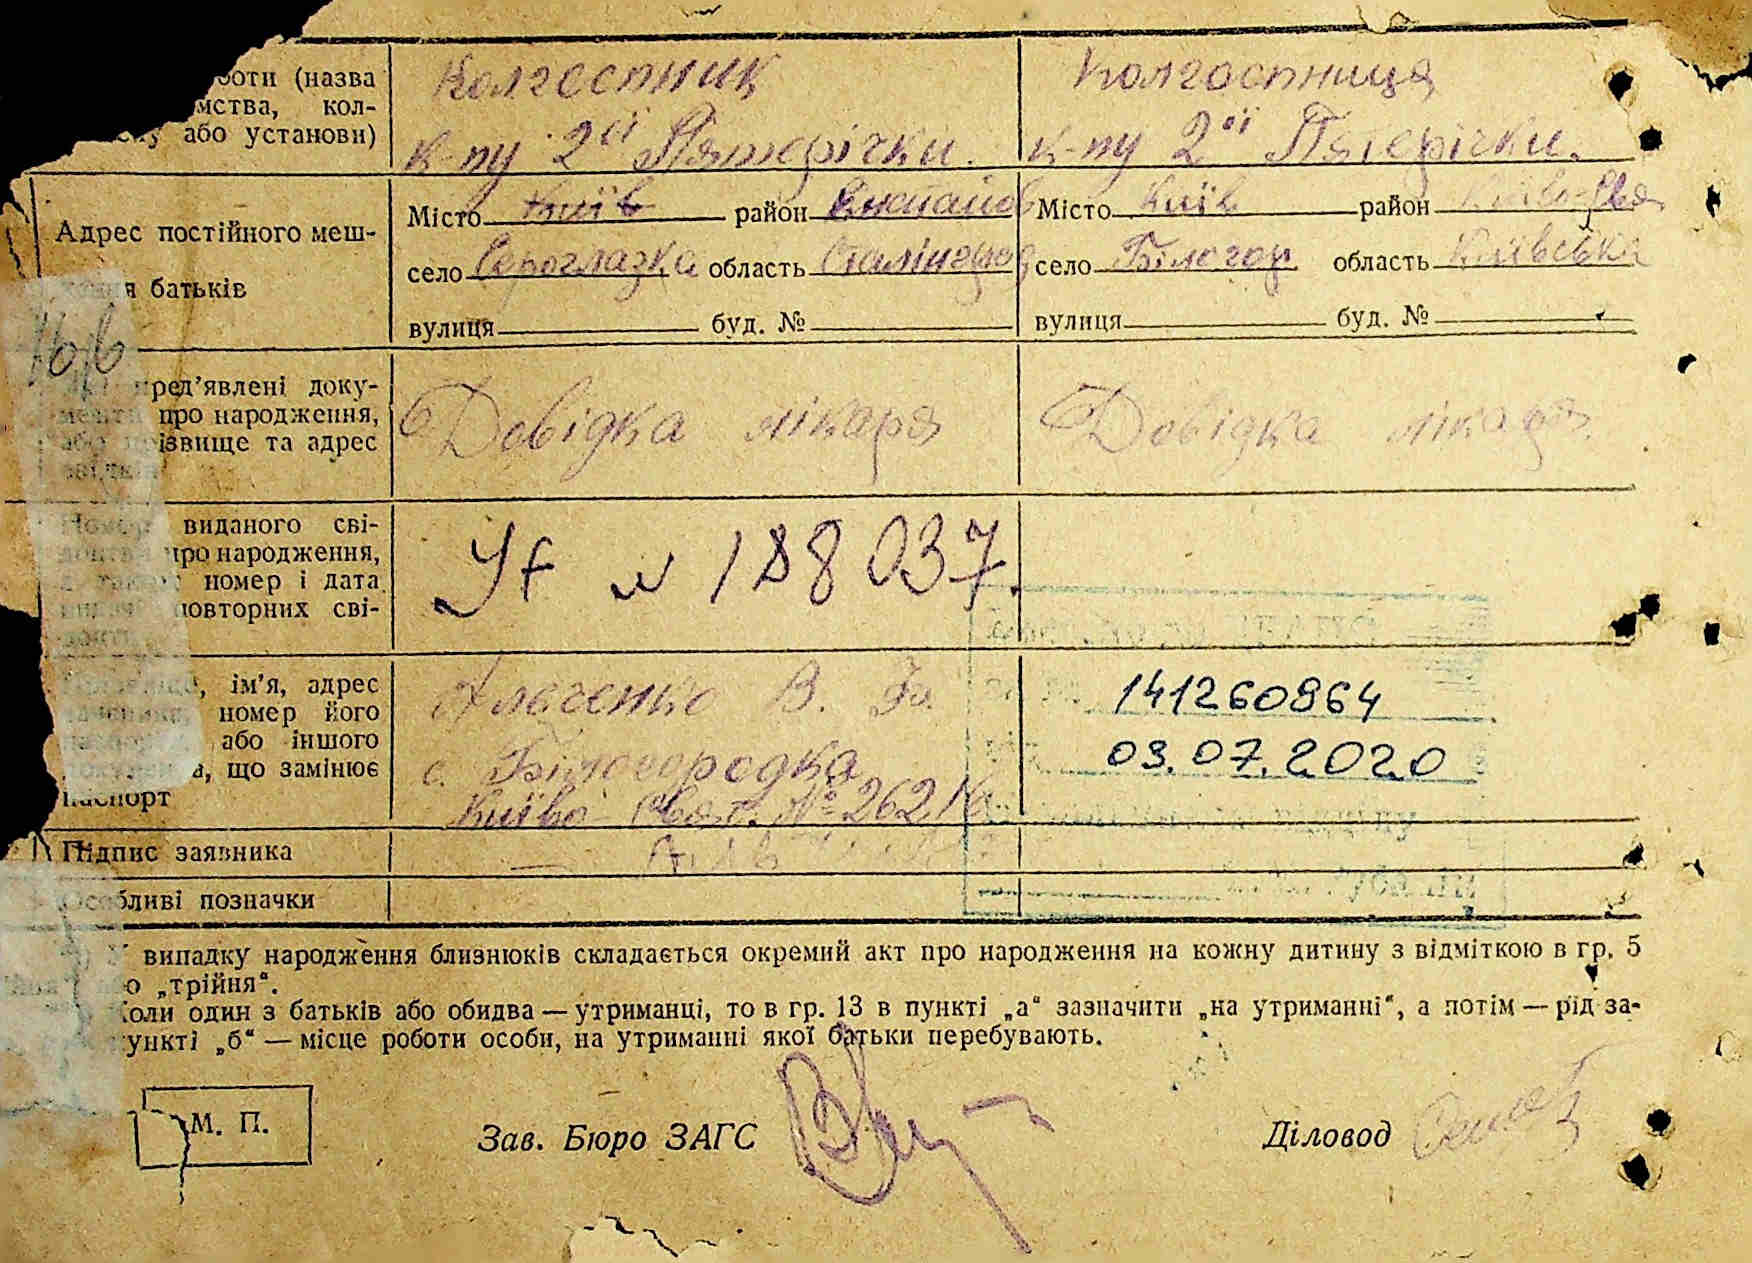 боти (назва
мства, кол-
або установи)
Колгоспник
к-пу 2ої Пятерічки.
Колгоспниця
к-пу 2ої Пятерічки.
Адрес постійного меш-
батьків
Місто Київ район
село Сероглазка область Сталінгр
вулиця буд. №
Місто Київ район Києво-Свя
село Білогор область Київська
вулиця буд. №
16/в
пред'явлені доку-
менти про народження,
або прізвище та адрес
Довідка лікаря
Довідка лікаря.
Номер виданого сві-
про народження,
номер і дата
повторних сві-
Уf № 188037.
ім'я, адрес
номер його
або іншого
що замінює
паспорт
В.
с. Білогородка
Києво-Свят. № 262/6
141260864
03.07.2020
Підпис заявника
Особливі позначки
У випадку народження близнюків складається окремий акт про народження на кожну дитину з відміткою в гр. 5
„трійня“.
Коли один з батьків або обидва — утриманці, то в гр. 13 в пункті „а“ зазначити „на утриманні“, а потім — рід за-
пункті „б“ — місце роботи особи, на утриманні якої батьки перебувають.
М. П.
Зав. Бюро ЗАГС
Діловод